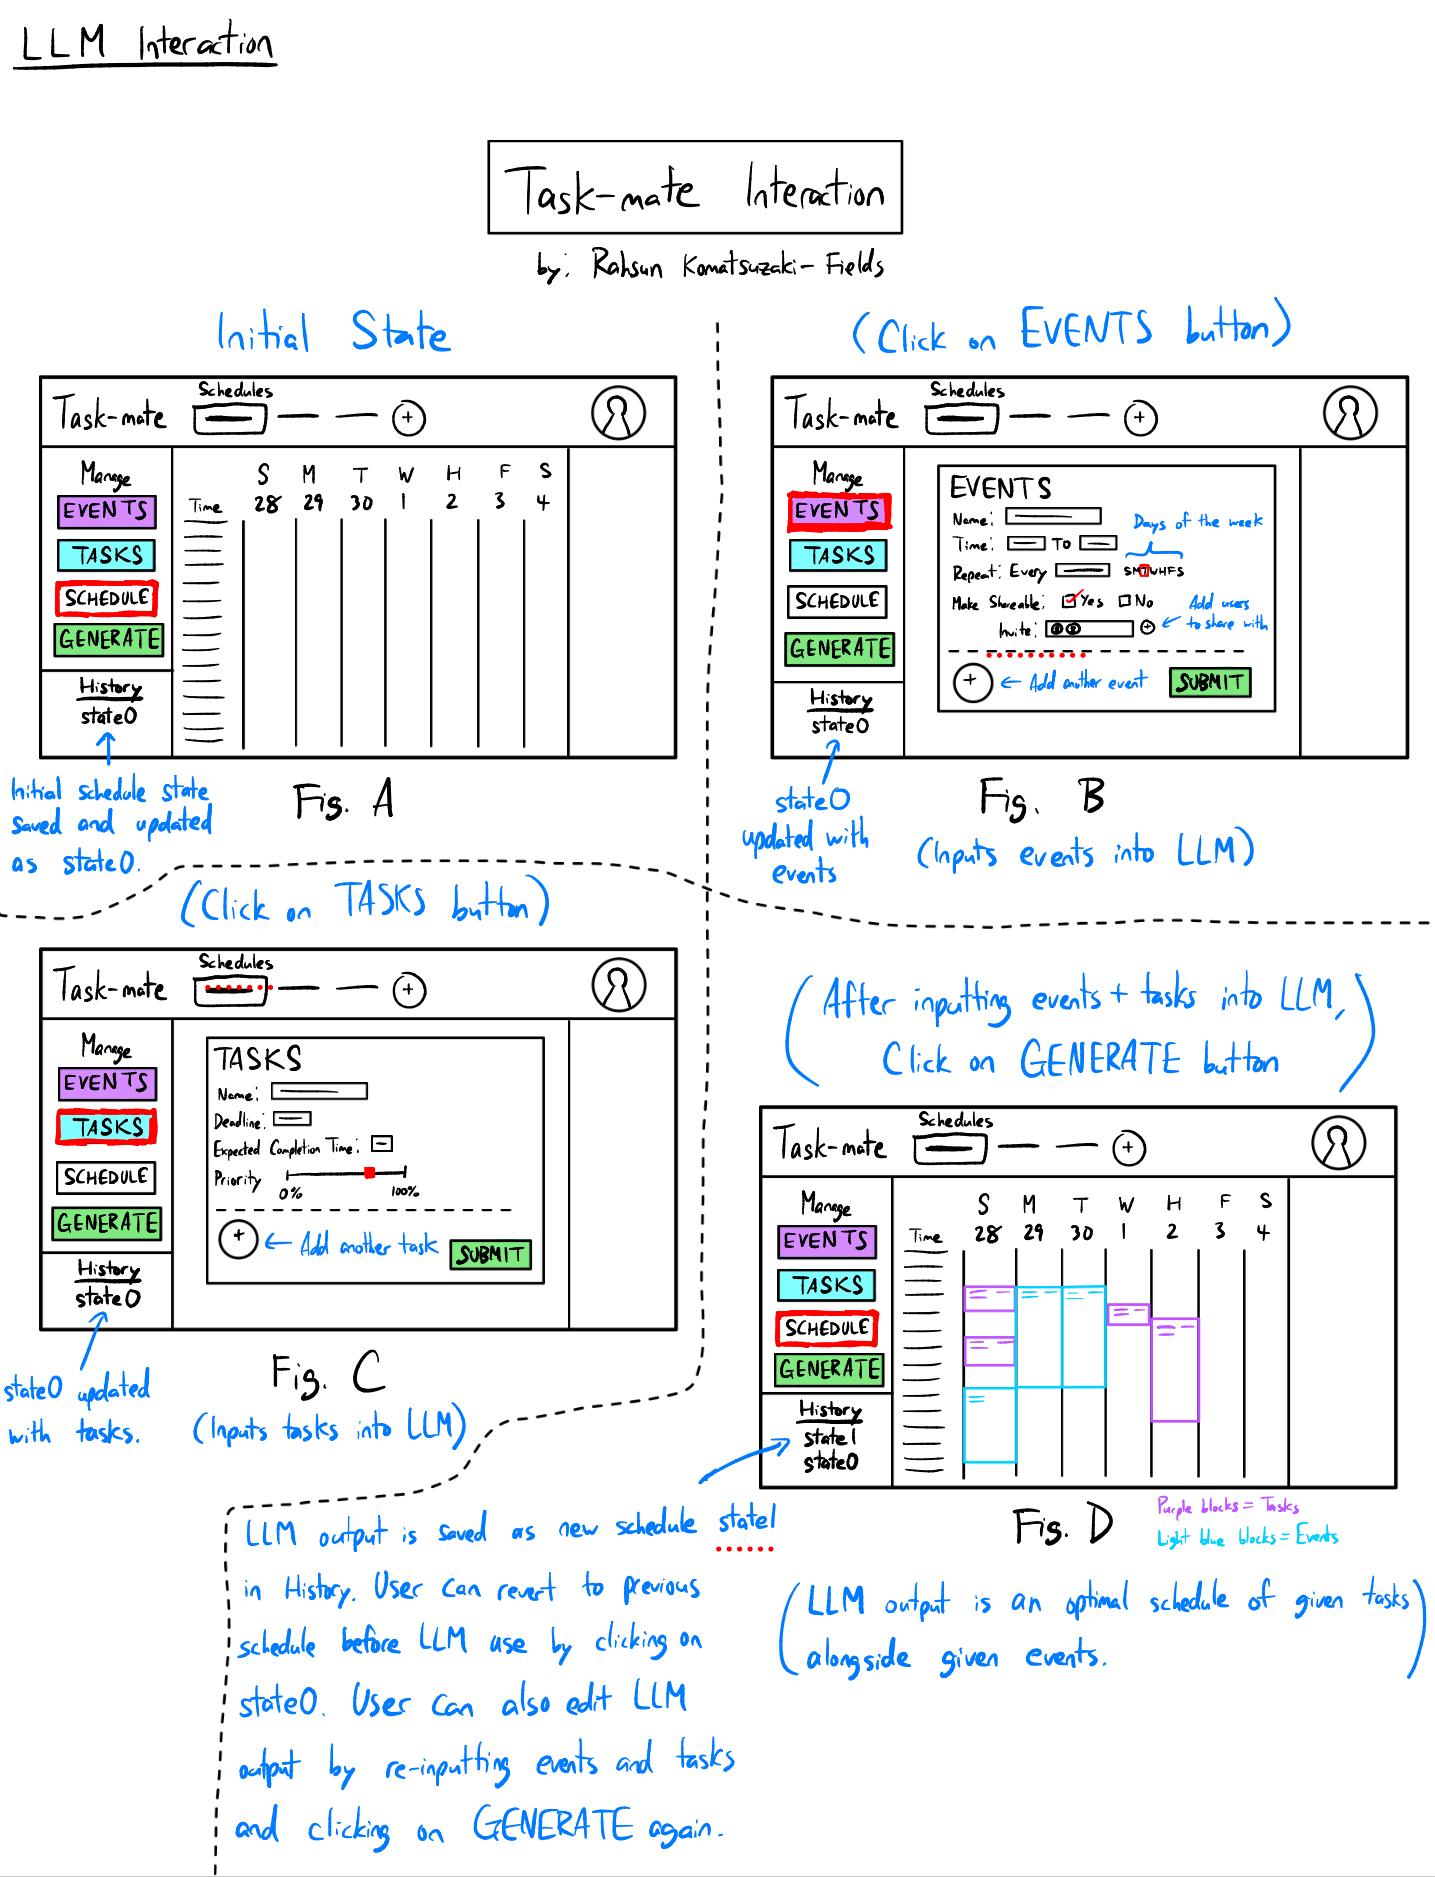 LLM Interaction
Task-mate Interaction
by: Rahsun Komatsuzaki-Fields
Initial State
Task-mate
Schedules
+
Manage
EVENTS
TASKS
SCHEDULE
GENERATE
History
state0
S M T W H F S
Time 28 29 30 1 2 3 4
Initial schedule state
saved and updated
as state0.
Fig. A
(Click on EVENTS button)
Task-mate
Schedules
+
Manage
EVENTS
TASKS
SCHEDULE
GENERATE
History
state0
EVENTS
Name:
Time: TO
Days of the week
Repeat: Every SMTWHFS
Make Shareable: Yes No
Invite: +
Add users
to share with
+ ← Add another event
SUBMIT
state0
updated with
events
Fig. B
(Inputs events into LLM)
(Click on TASKS button)
Task-mate
Schedules
+
Manage
EVENTS
TASKS
SCHEDULE
GENERATE
History
state0
TASKS
Name:
Deadline:
Expected Completion Time:
Priority
0% 100%
+ ← Add another task
SUBMIT
state0 updated
with tasks.
Fig. C
(Inputs tasks into LLM)
(After inputting events + tasks into LLM,
Click on GENERATE button)
Task-mate
Schedules
+
Manage
EVENTS
TASKS
SCHEDULE
GENERATE
History
state1
state0
S M T W H F S
Time 28 29 30 1 2 3 4
Fig. D
Purple blocks = Tasks
Light blue blocks = Events
(LLM output is an optimal schedule of given tasks
alongside given events.)
LLM output is saved as new schedule state1
in History. User can revert to previous
schedule before LLM use by clicking on
state0. User can also edit LLM
output by re-inputting events and tasks
and clicking on GENERATE again.